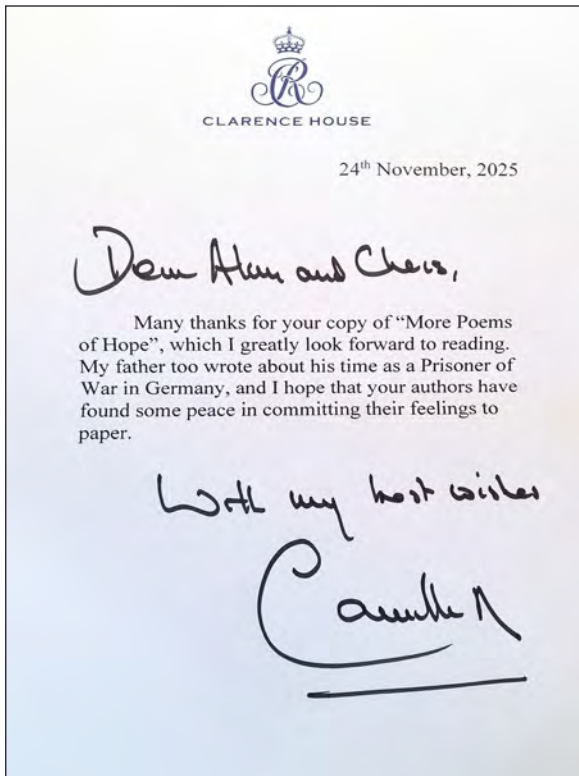 CLARENCE HOUSE
24th November, 2025
Dear Alan and Chris,
Many thanks for your copy of “More Poems
of Hope”, which I greatly look forward to reading.
My father too wrote about his time as a Prisoner of
War in Germany, and I hope that your authors have
found some peace in committing their feelings to
paper.
With my best wishes
Camilla R